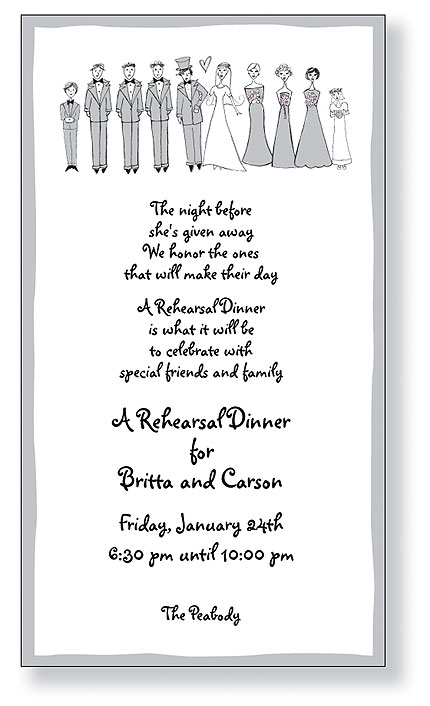 The night before
she's given away
We honor the ones
that will make their day
A Rehearsal Dinner
is what it will be
to celebrate with
special friends and family
A Rehearsal Dinner
for
Britta and Carson
Friday, January 24th
6:30 pm until 10:00 pm
The Peabody